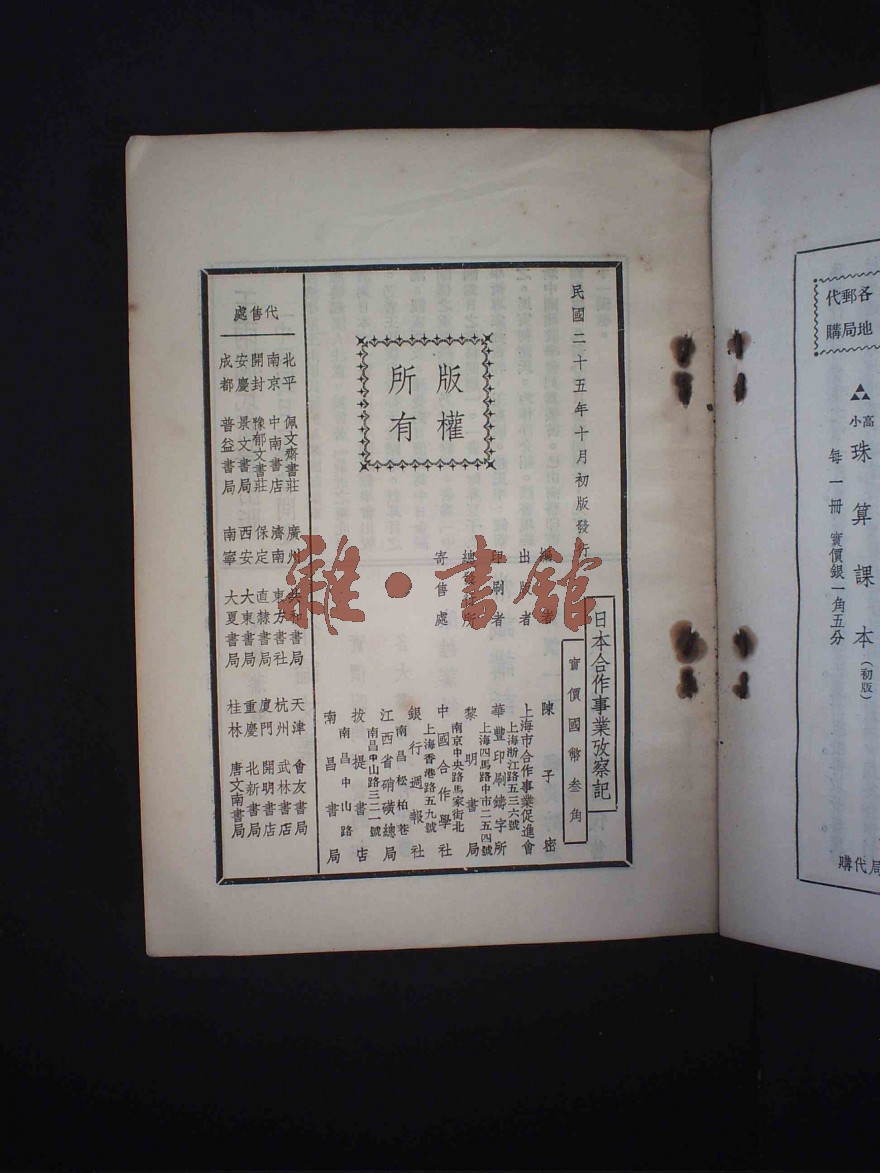 民國二十五年十月初版發行
日本合作事業攷察記
實價國幣叁角
編者 陳子密
出版者 上海市合作事業促進會
上海浙江路五三六號
印刷者 華豐印刷鑄字所
上海四馬路中市二五四號
總發行所 黎明書局
南京中央路馬家街北
寄售處 中國合作學社
上海香港路五九號
銀行週報社
南昌松柏巷
江西省硝磺總局
南昌中山路三二一號
拔提書店
南昌中山路
南昌書局
版權
所有
代售處
北平 佩文齋書莊 廣州 共和書局 天津 會友書局
南京 中南書店 濟南 東方書社 杭州 武林書店
開封 豫郁文書莊 保定 直隸書局 廈門 開明書店
安慶 景文書局 西安 大東書局 重慶 北新書局
成都 普益書局 南寧 大夏書局 桂林 唐文南書局
雜·書館
各地
郵局
代購
高小
珠算課本(初版)
每一冊 實價銀一角五分
局代購